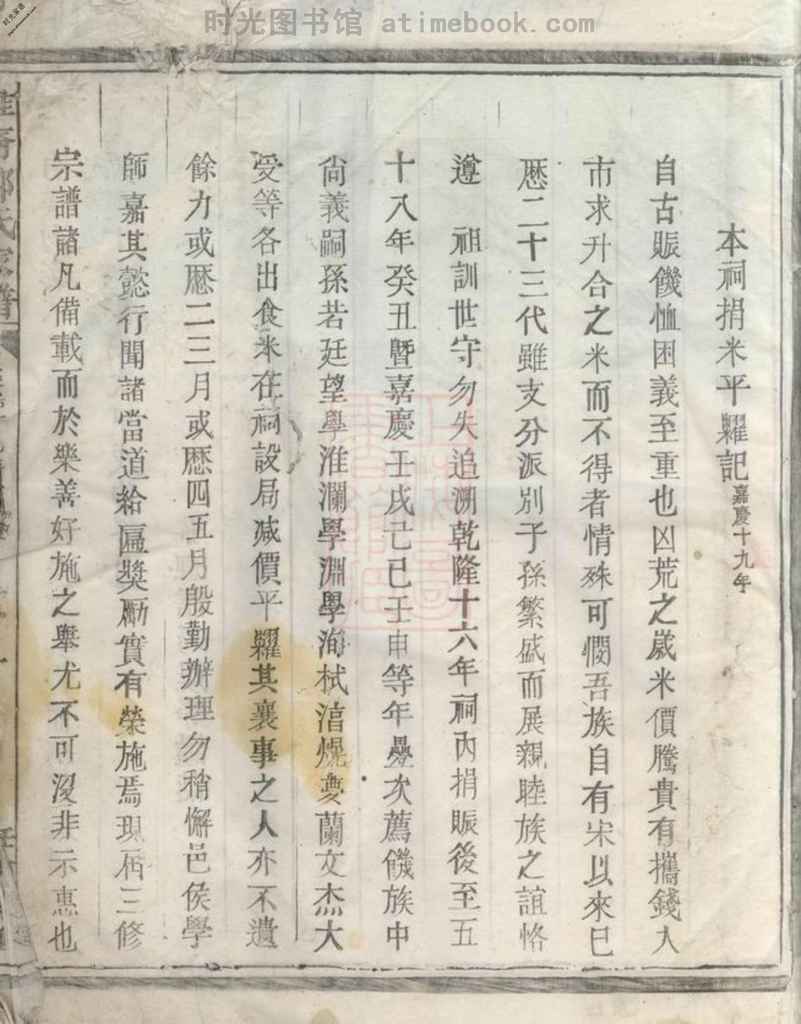 时光图书馆 atimebook.com
本祠捐米平糶記 嘉慶十九年
自古賑饑恤困義至重也凶荒之歲米價騰貴有攜錢入
市求升合之米而不得者情殊可憫吾族自有宋以來已
歷二十三代雖支分派別子孫繁盛而展親睦族之誼恪
遵 祖訓世守勿失追溯乾隆十六年祠內捐賑後至五
十八年癸丑暨嘉慶壬戌己巳壬申等年疊次薦饑族中
尙義嗣孫若廷望學淮瀾學淵學洵栻湆 蘭文杰大
受等各出食米在祠設局減價平糶其襄事之人亦不遺
餘力或歷二三月或歷四五月殷勤辦理勿稍懈邑侯學
師嘉其懿行聞諸當道給匾獎勵實有榮施焉現在三修
宗譜諸凡備載而於樂善好施之舉尤不可沒非示惠也